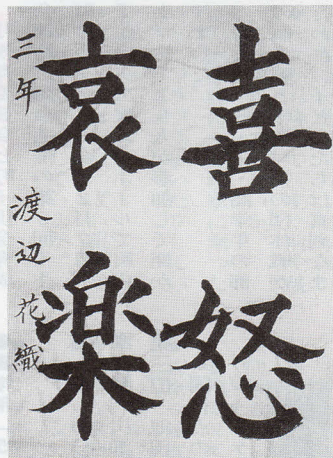 喜怒
哀楽
三年 渡辺花織